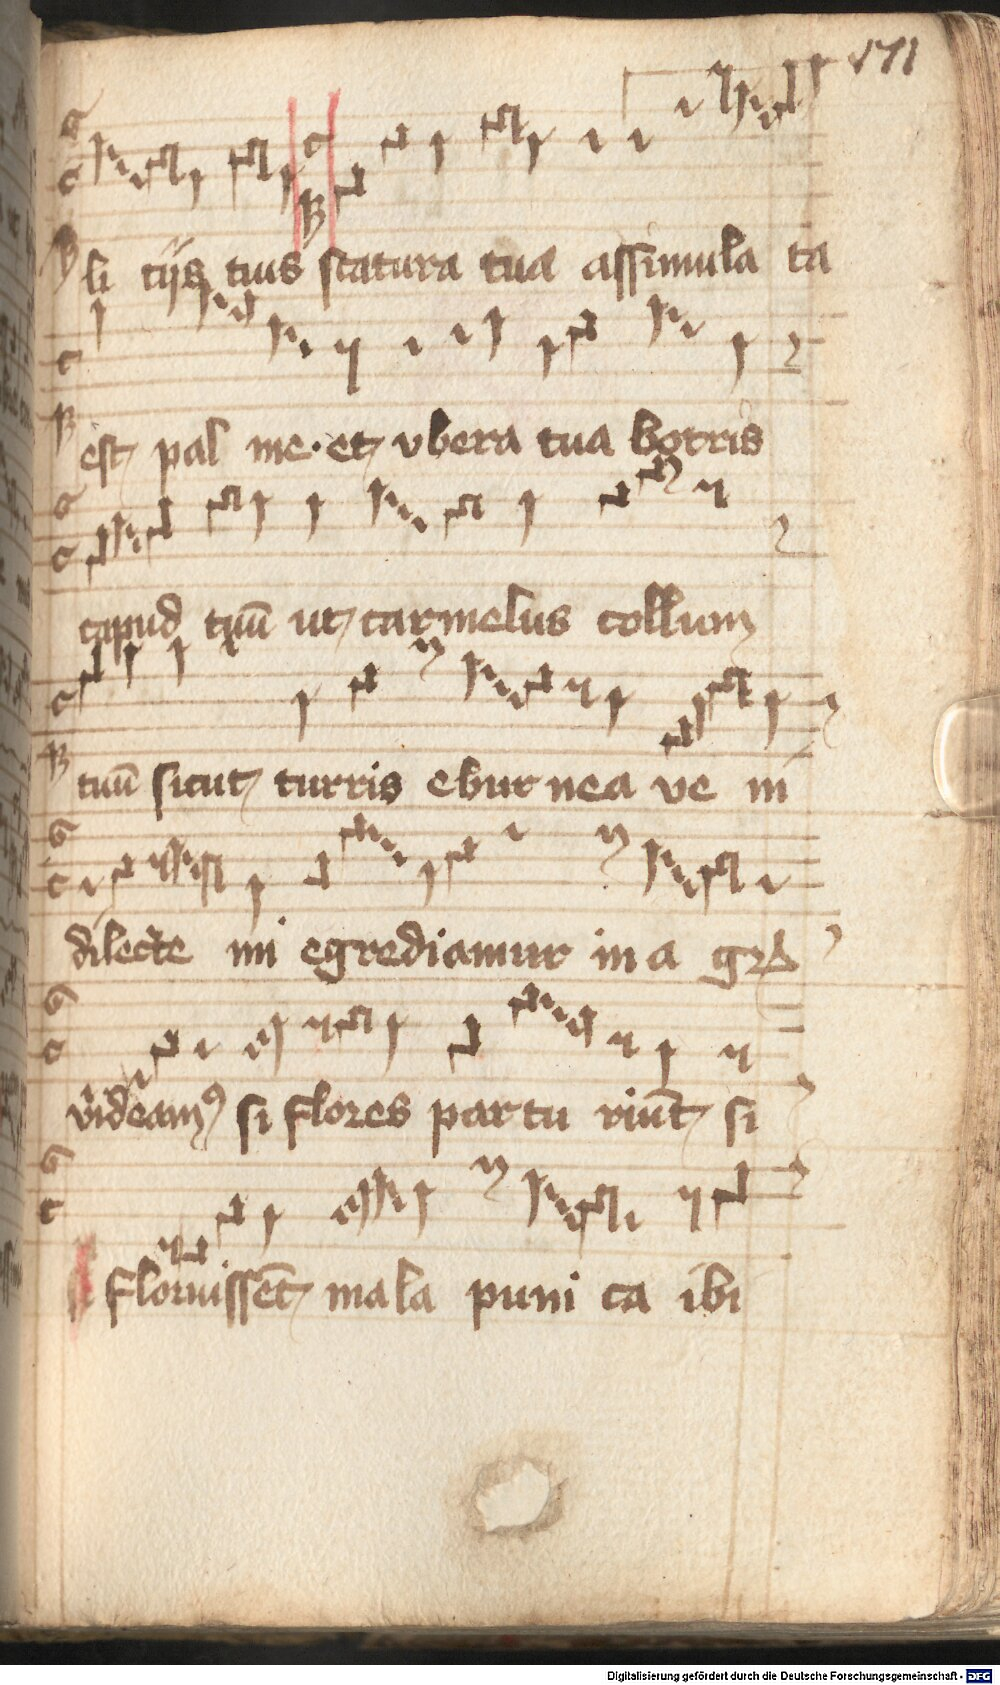 171
li tijs tuis statura tua assimula ta
est pal me · et ubera tua botris
capud tuū ut carmelus collum
tuū sicut turris eburnea ve ni
dilecte mi egrediamur in a grū
videamꝰ si flores partu riūt si
floruissēt mala puni ca ibi
Digitalisierung gefördert durch die Deutsche Forschungsgemeinschaft - DFG